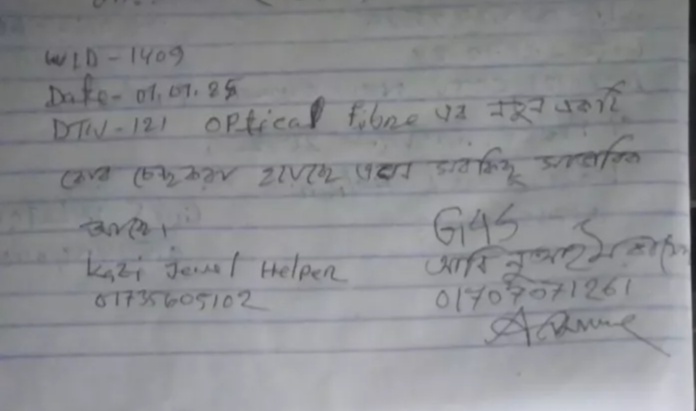 WID-1409
Date-01.01.25
DTN-121 OPtical Fibre এর নতুন একটি
কোর চেইঞ্জ করা হয়েছে এখন সবকিছু স্বাভাবিক
আছে।
Kazi Jewel Helper
01735605102
G4S
আরি
01707071261